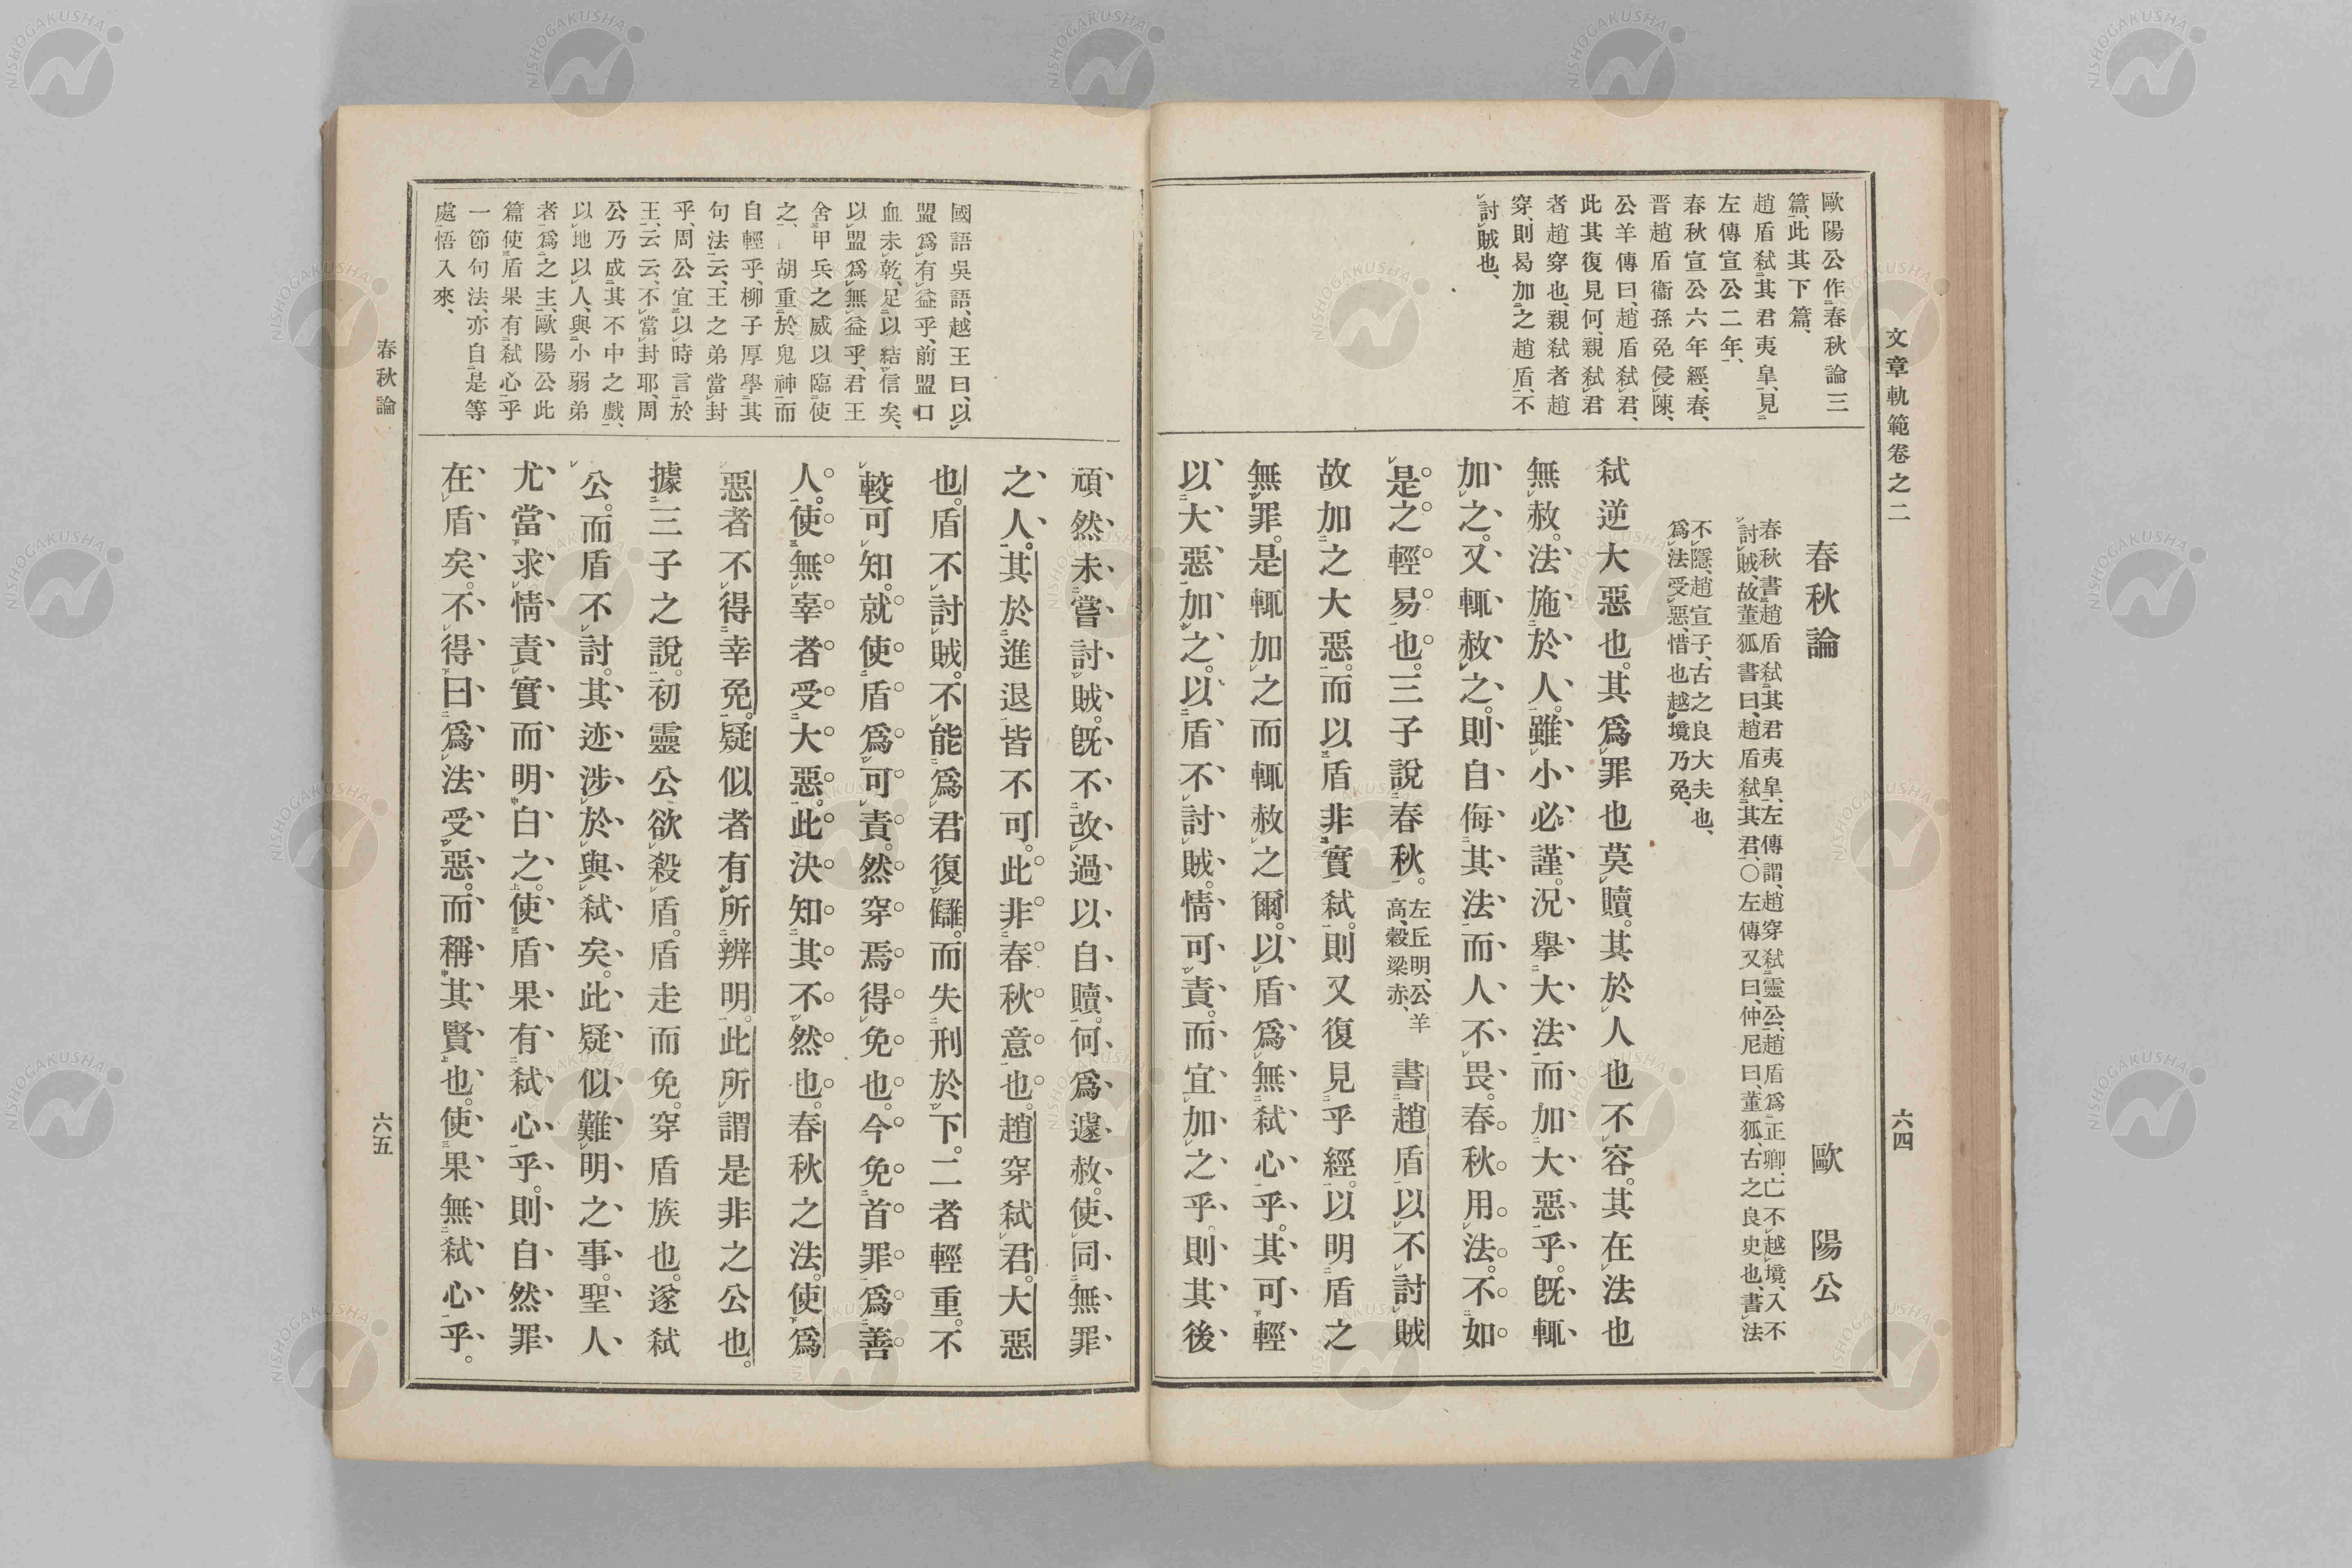 文章軌範卷之二
六四
歐陽公作春秋論三
篇、此其下篇、
趙盾弑其君夷皐、見
左傳宣公二年、
春秋宣公六年經、春、
晉趙盾衞孫免侵陳、
公羊傳曰、趙盾弑君、
此其復見何、親弑君
者趙穿也、親弑者趙
穿、則曷加之趙盾、不
討賊也、
春秋論 歐陽公
春秋書趙盾弑其君夷皐、左傳謂、趙穿弑靈公、趙盾爲正卿、亡不越境、入不
討賊、故董狐書曰、趙盾弑其君、○左傳又曰、仲尼曰、董狐、古之良史也、書法
不隱、趙宣子、古之良大夫也、
爲法受惡、惜也越境乃免、
弑逆大惡也。其爲罪也莫贖。其於人也不容。其在法也
無赦。法施於人。雖小必謹。況舉大法而加大惡乎。既輒
加之。又輒赦之。則自侮其法而人不畏。春秋用法。不如
是之輕易也。三子說春秋。左丘明、公羊高、穀梁赤、書趙盾以不討賊
故加之大惡。而以盾非實弑。則又復見乎經。以明盾之
無罪。是輒加之而輒赦之爾。以盾爲無弑心乎。其可輕
以大惡加之。以盾不討賊。情可責。而宜加之乎。則其後
國語吳語、越王曰、以
盟爲有益乎、前盟口
血未乾、足以結信矣、
以盟爲無益乎、君王
舍甲兵之威以臨使
之、胡重於鬼神而
自輕乎、柳子厚學其
句法云、王之弟當封
乎、周公宜以時言於
王、云云、不當封耶、周
公乃成其不中之戲、
以地以人、與小弱弟
者、爲之主、歐陽公此
篇使盾果有弑心乎
一節句法、亦自是等
處悟入來、
頑然未嘗討賊。既不改過以自贖。何爲遽赦。使同無罪
之人。其於進退皆不可。此非春秋意也。趙穿弑君。大惡
也。盾不討賊。不能爲君復讎。而失刑於下。二者輕重。不
較可知。就使盾爲可責。然穿焉得免也。今免首罪。爲善
人。使無辜者受大惡。此決知其不然也。春秋之法。使爲
惡者不得幸免。疑似者有所辨明。此所謂是非之公也。
據三子之說。初靈公欲殺盾。盾走而免。穿盾族也。遂弑
公。而盾不討。其迹涉於與弑矣。此疑似難明之事。聖人
尤當求情責實而明白之。使盾果有弑心乎。則自然罪
在盾矣。不得曰爲法受惡。而稱其賢也。使果無弑心乎。
春秋論
六五
NISHOGAKUSHA